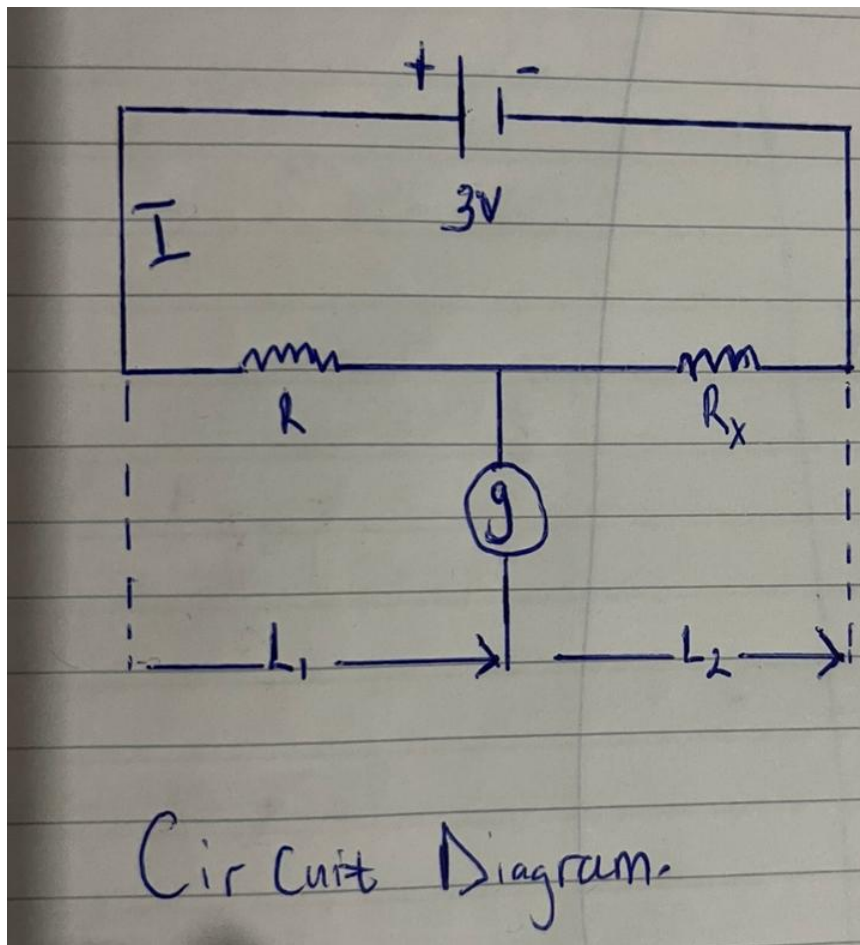 + -
3V
I
R
Rx
g
L1 L2
Circuit Diagram.